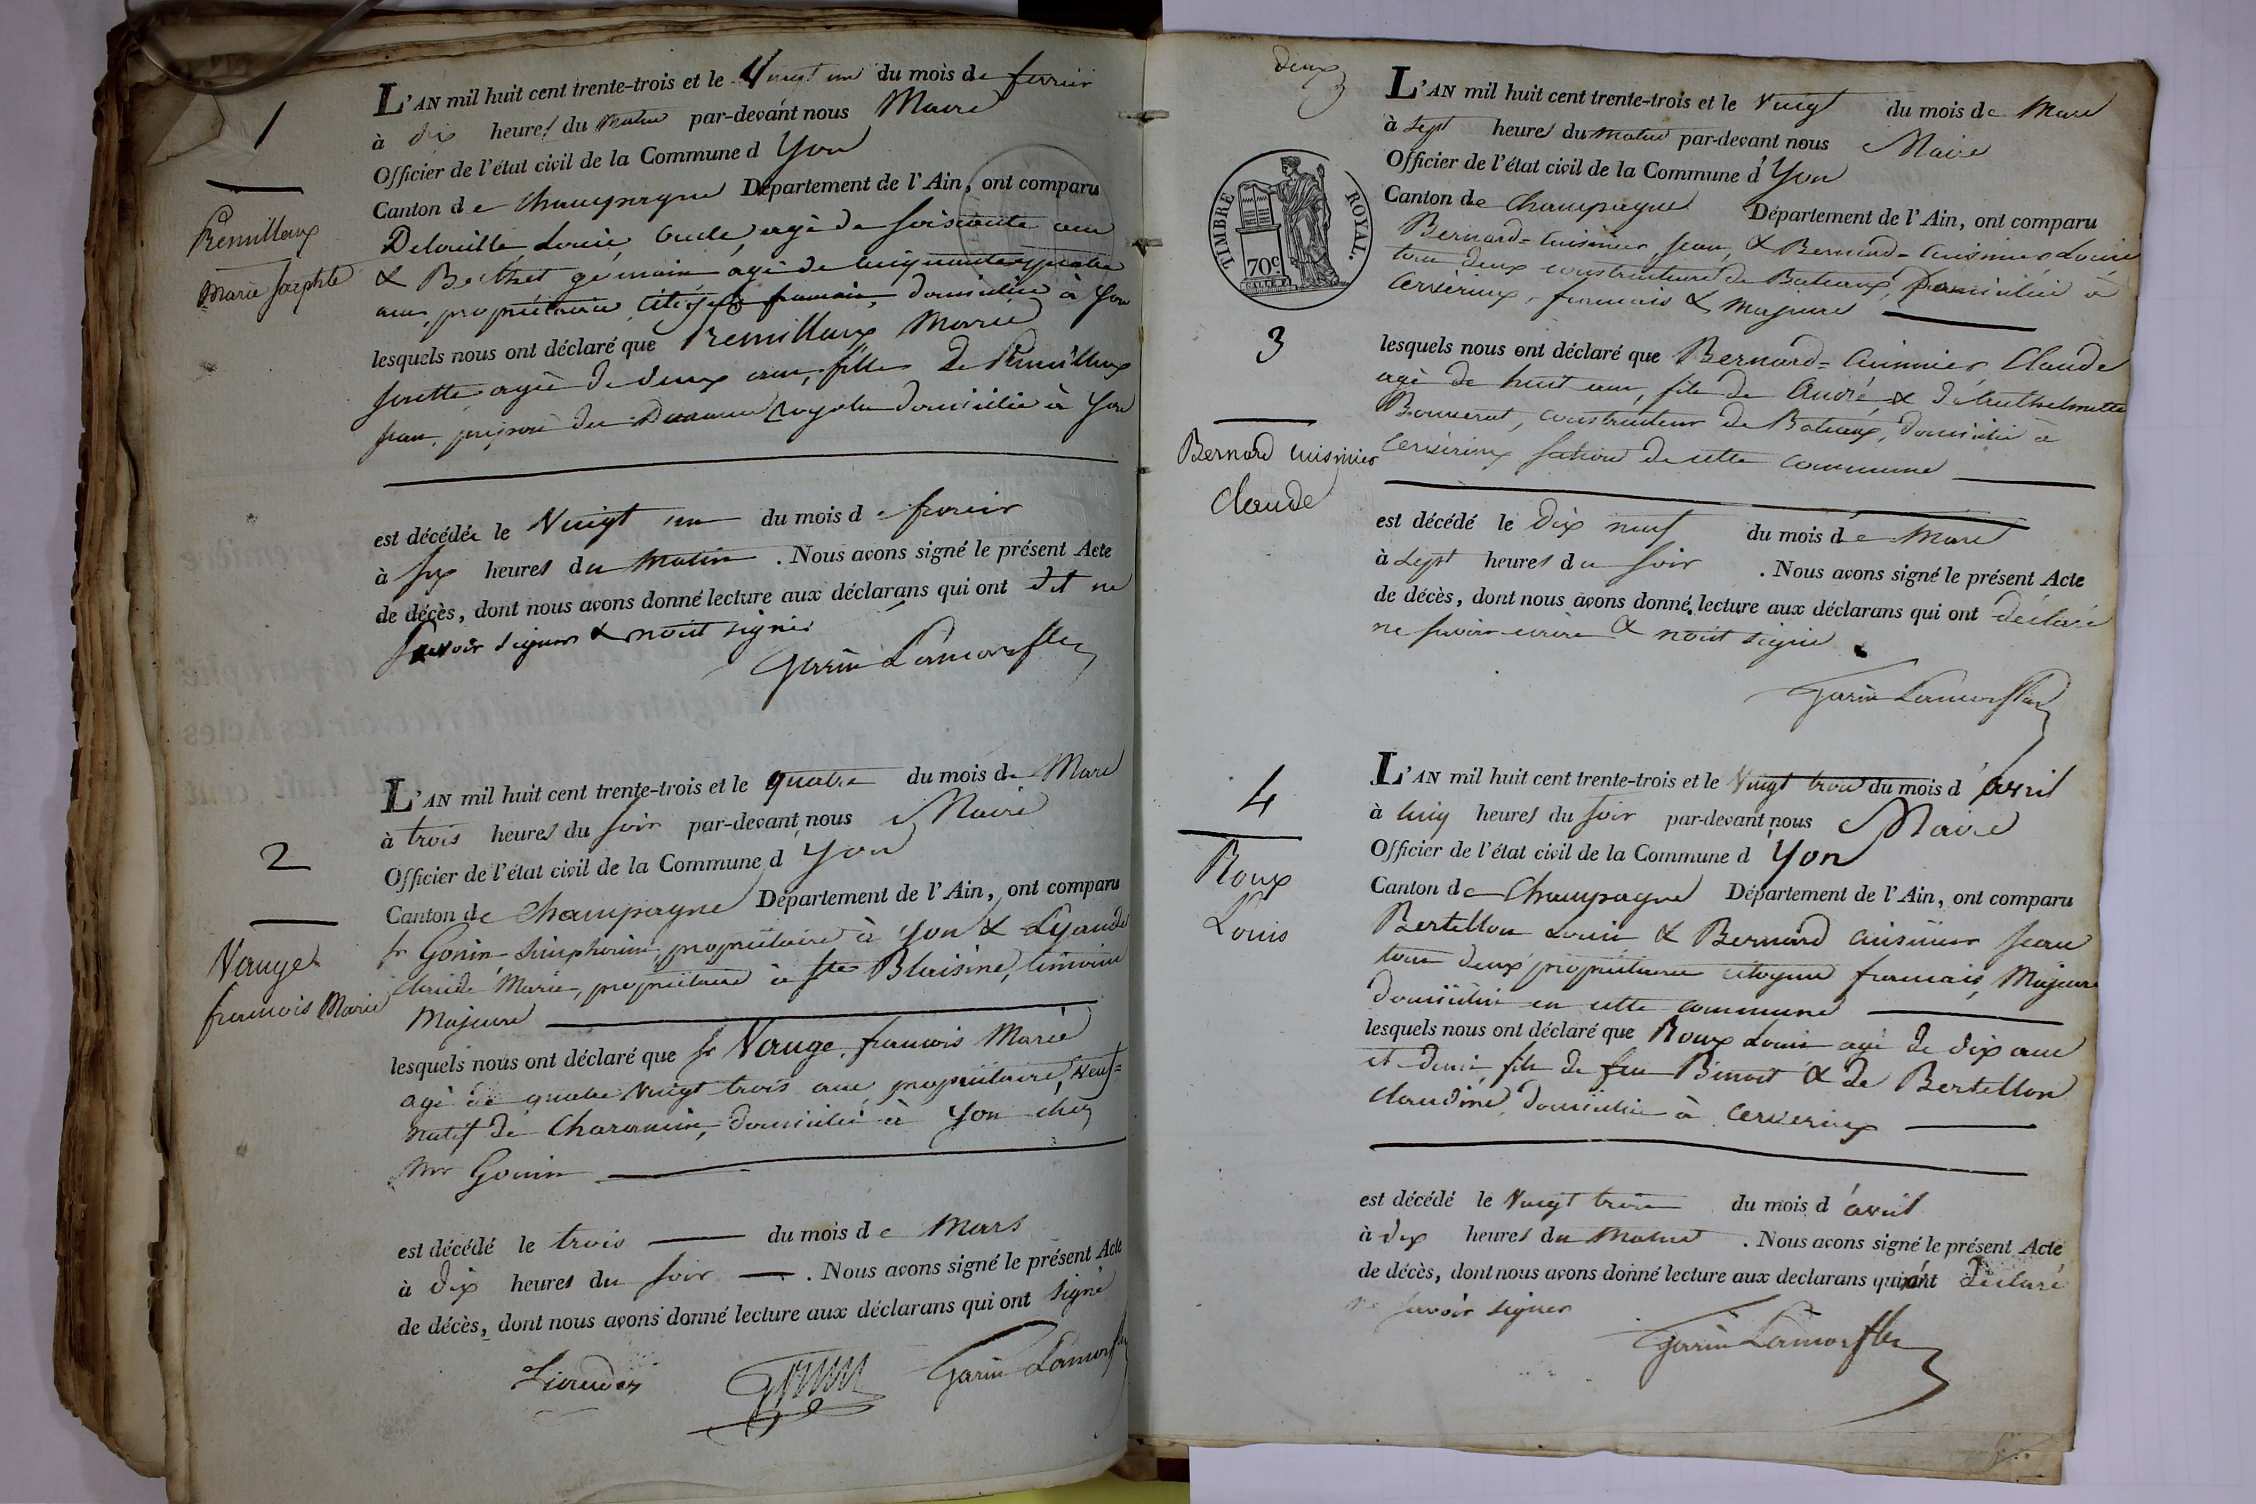 1
Remillaux
Marie Josephte
L'AN mil huit cent trente-trois et le Vingt un du mois de fevrier
à dix heures du matin par-devant nous Maire
Officier de l'état civil de la Commune d Yon
Canton de Champagne Département de l'Ain, ont comparu
Louis, oncle, agé de soixante ans
& Berthet germain agé de cinquante quatre
ans, propriétaires, citoyens francais, domiciliés à Yon
lesquels nous ont déclaré que Remillaux Marie
Josette agée de deux ans, fille de Remillaux
Jean, préposé des Douanes royales domicilié à Yon
est décédée le Vingt un du mois de fevrier
à six heures du Matin . Nous avons signé le présent Acte
de décès, dont nous avons donné lecture aux déclarans qui ont dit ne
savoir signer & n'ont signés
Garin Lamorflan
2
Vauge
francois Marie
L'AN mil huit cent trente-trois et le quatre du mois de Mars
à trois heures du soir par-devant nous Maire
Officier de l'état civil de la Commune d Yon
Canton de Champagne Département de l'Ain, ont comparu
sr Gonin Simphorien, propriétaire à Yon & Lyaudet
Claude Marie, propriétaire à ste Blaisine, témoins
Majeurs
lesquels nous ont déclaré que sr Vauge, francois Marie
agé de quatre Vingt trois ans propriétaire, Veuf =
natif de Charancin, domicilié à Yon chez
Mr Gonin
est décédé le trois du mois de Mars
à dix heures du soir . Nous avons signé le présent Acte
de décès, dont nous avons donné lecture aux déclarans qui ont signé
Garin Lamorflan
deux
TIMBRE ROYAL.
70c
3
Bernard cuisinier
Claude
L'AN mil huit cent trente-trois et le Vingt du mois de Mars
à sept heures du matin par-devant nous Maire
Officier de l'état civil de la Commune d'Yon
Canton de Champagne Département de l'Ain, ont comparu
Bernard-Cuisinier Jean, & Bernard-Cuisinier Louis
tous deux constructeurs de Bateaux, Domiciliés à
Cerveirieux, francais & Majeurs
lesquels nous ont déclaré que Bernard=Cuisinier Claude
agé de huit ans, fils de André & d'Anthelmette
Bonnerat, constructeur de Bateaux, domicilié à
Cerveirieux section de cette commune
est décédé le Dix neuf du mois de Mars
à sept heures du soir . Nous avons signé le présent Acte
de décès, dont nous avons donné lecture aux déclarans qui ont déclaré
ne savoir ecrire & n'ont signé
Garin Lamorflan
4
Roux
Louis
L'AN mil huit cent trente-trois et le Vingt trois du mois d'avril
à cinq heures du soir par-devant nous Maire
Officier de l'état civil de la Commune d Yon
Canton de Champagne Département de l'Ain, ont comparu
Bertellon Louis & Bernard cuisinier Jean
tous deux propriétaires citoyens francais, Majeurs
domiciliés en cette commune
lesquels nous ont déclaré que Roux Louis agé de dix ans
et demi, fils de feu Benoit & de Bertellon
Claudine, domicilié à Cerveirieux
est décédé le Vingt trois du mois d'avril
à dix heures du Matin . Nous avons signé le présent Acte
de décès, dont nous avons donné lecture aux declarans qui ont déclaré
ne savoir signer
Garin Lamorflan